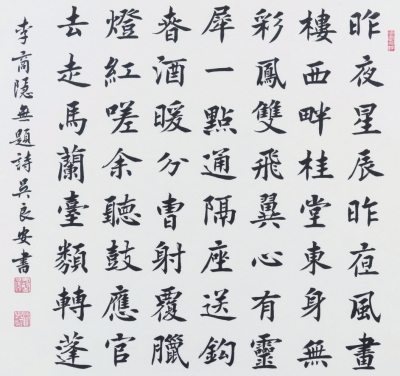 昨夜星辰昨夜風畫
樓西畔桂堂東身無
彩鳳雙飛翼心有靈
犀一點通隔座送鈎
春酒暖分曹射覆臘
燈紅嗟余聽鼓應官
去走馬蘭臺類轉蓬
李商隱無題詩吳良安書